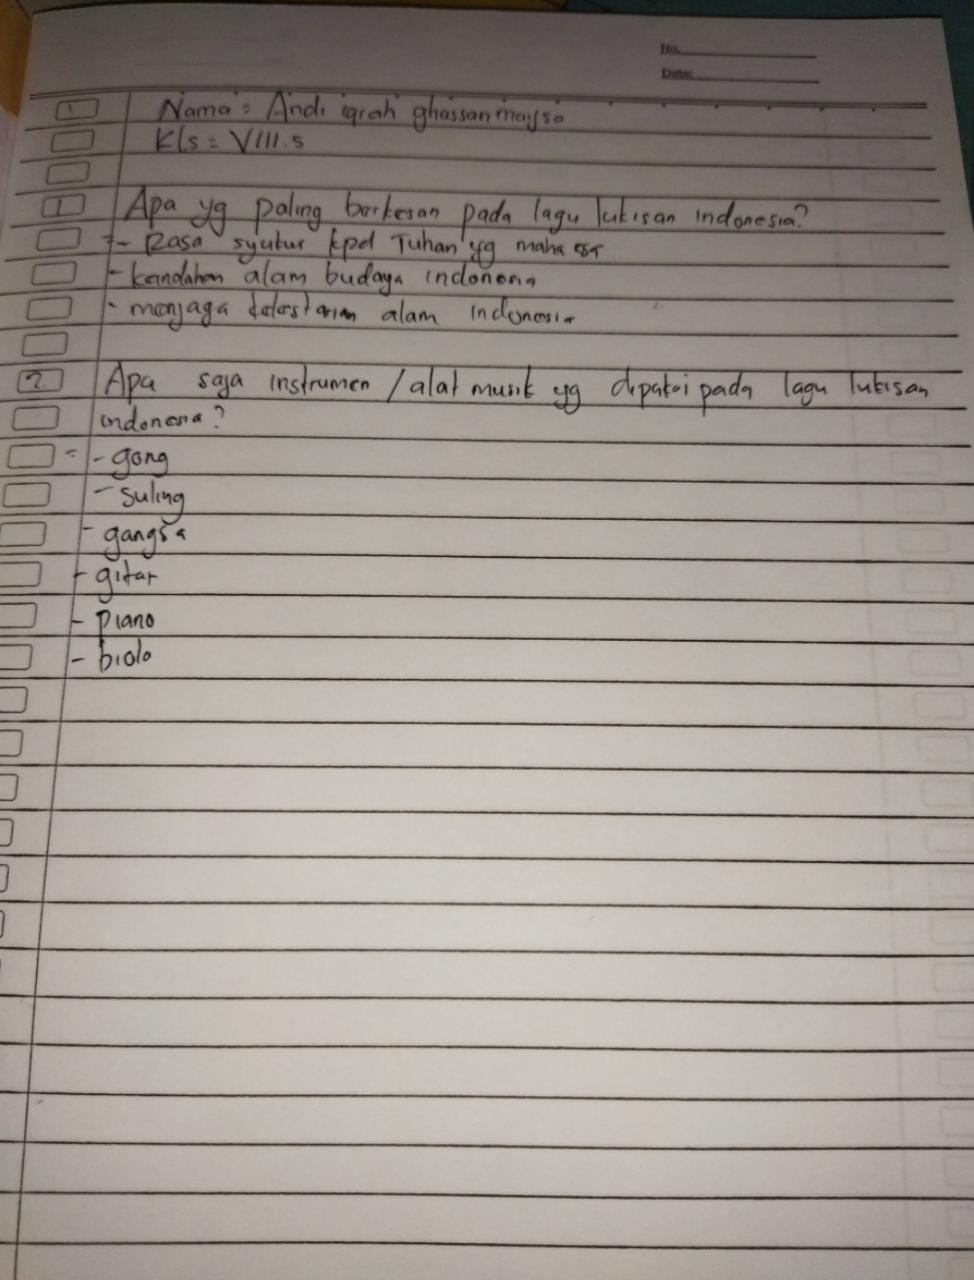 No.
Date:
1 Nama = Andi iqrah ghassan maysa
Kls = VIII.5
1 Apa yg paling berkesan pada lagu lukisan indonesia?
=- Rasa syukur kpd Tuhan yg maha esa
- keindahan alam budaya indonesia
- menjaga kelestarian alam Indonesia
2. Apa saja instrumen / alat musik yg dipakai pada lagu lukisan
indonesia?
= - gong
- suling
- gangsa
- gitar
- piano
- biola